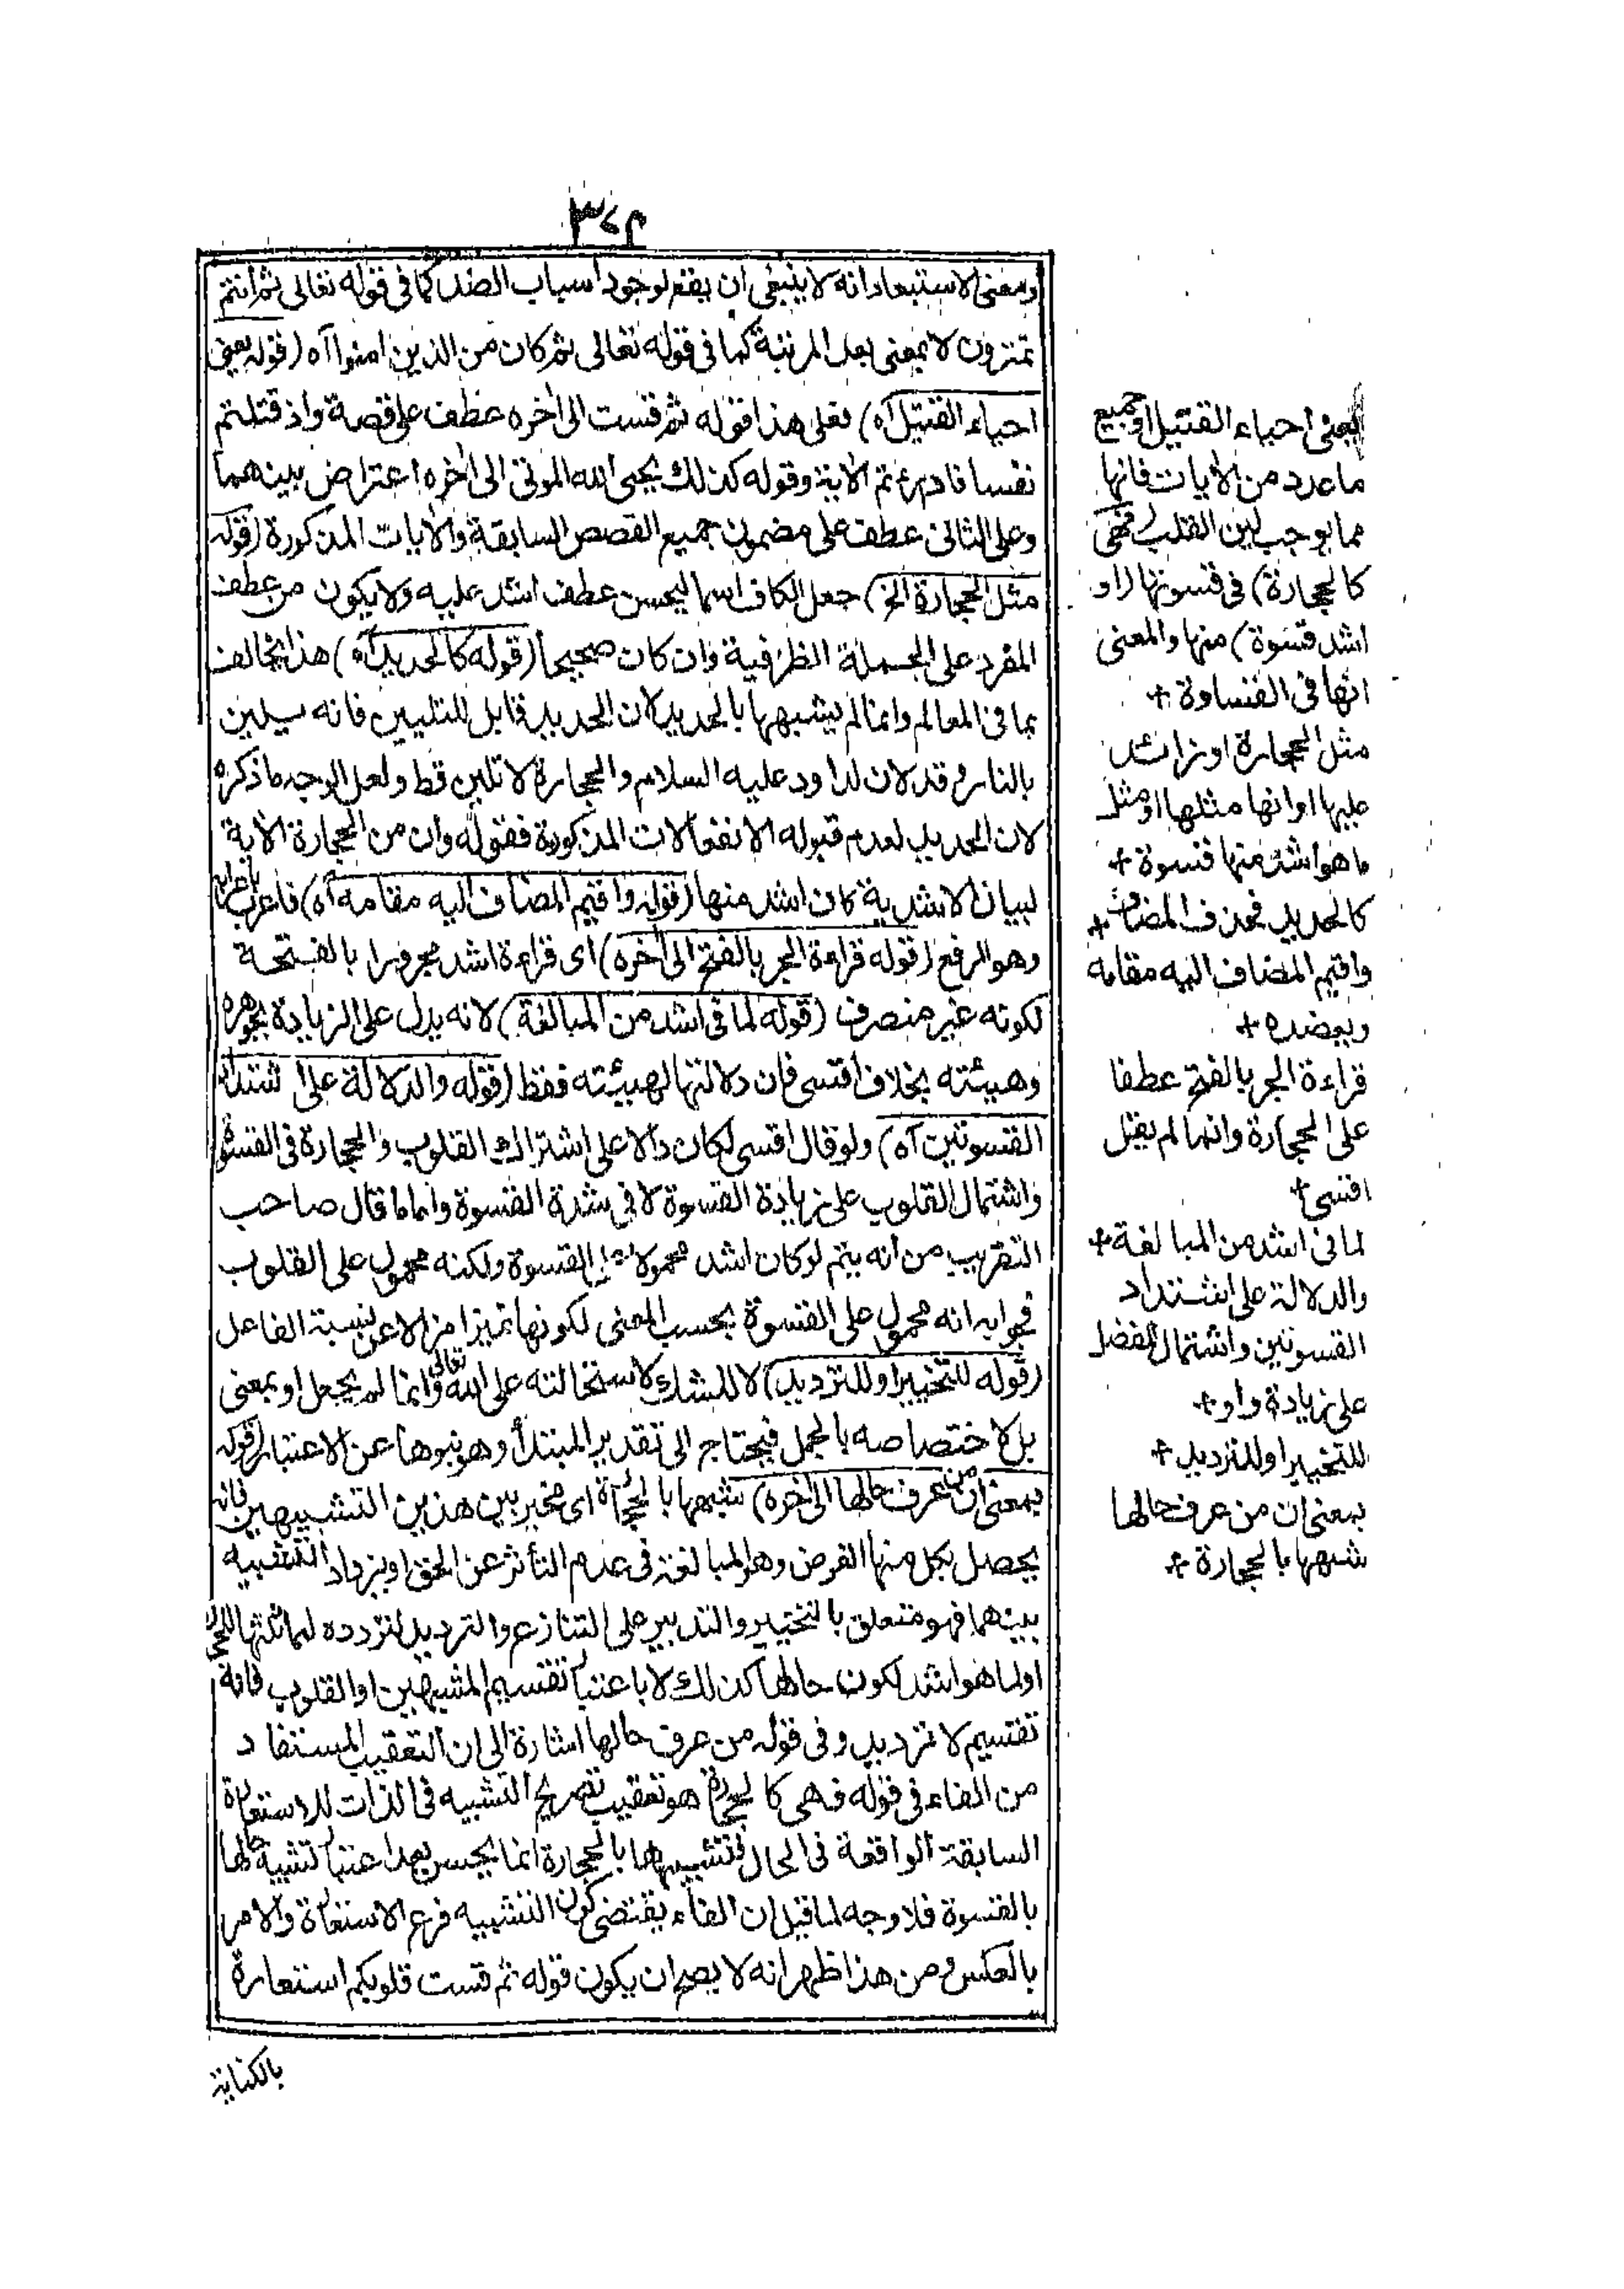 ٣٧٣
ومعنى الاستبعاد انه لا ينبغى ان يقع لوجود اسباب الضد كما فى قوله تعالى ثم انتم
تمترون لا بمعنى بعد المرتبة كما فى قوله تعالى ثم كان من الذين امنوا آه (قوله يعنى
احياء القتيل آه) فعلى هذا قوله ثم قست الى اخره عطف على قصة واذ قتلتم
نفسا فادرءتم الاية وقوله كذلك يحيى الله الموتى الى اخره اعتراض بينهما
وعلى الثانى عطف على مضمون جميع القصص السابقة والايات المذكورة (قوله
مثل الحجارة الخ) جعل الكاف اسما ليحسن عطف اشد عليه ولا يكون من عطف
المفرد على الجملة الظرفية وان كان صحيحا (قوله كالحديد آه) هذا يخالف
بما فى المعالم وانما لم يشبهها بالحديد لان الحديد قابل للتليين فانه يلين
بالنار وقد لان لداود عليه السلام والحجارة لا تلين قط ولعل الوجه ما ذكره
لان الحديد لعدم قبوله الانفعالات المذكورة فقوله وان من الحجارة الاية
لبيان الاشدية كان اشد منها (قوله واقيم المضاف اليه مقامه آه) فاعرب باعرابه
وهو الرفع (قوله قراءة الجر بالفتح الى اخره) اى قراءة اشد مجرورا بالفتحة
لكونه غير منصرف (قوله لما فى اشد من المبالغة) لانه يدل على الزيادة بجوهره
وهيئته بخلاف اقسى فان دلالتها لهيئته فقط (قوله والدلالة على اشتداد
القسوتين آه) ولو قال اقسى لكان دالا على اشتراك القلوب والحجارة فى القسوة
واشتمال القلوب على زيادة القسوة لا فى شدة القسوة واما ما قال صاحب
التقريب من انه يتم لو كان اشد محمولا على القسوة ولكنه محمول على القلوب
فجوابه انه محمول على القسوة بحسب المعنى لكونها تميزا مزالا عن نسبة الفاعل
(قوله للتخيير او للترديد) لا للشك لاستحالته على الله تعالى وانما لم يجعل او بمعنى
بل لاختصاصه بالجمل فيحتاج الى تقدير المبتدأ وهو نبوها عن الاعتبار (قوله
بمعنى ان من عرف حالها الى اخره) شبهها بالحجارة اى مخير بين هذين التشبيهين فانه
يحصل بكل منها الغرض وهو المبالغة فى عدم التأثر عن الحق او يزداد التشبيه
بينهما فهو متعلق بالتخيير والتدبير على التنازع والترديد لتردده لمماثلتها للحجارة
او لما هو اشد لكون حالها كذلك لا باعتبار تقسيم المشبهين او القلوب فانه
تقسيم لا ترديد وفى قوله من عرف حالها اشارة الى ان التعقيب المستفاد
من الفاء فى قوله فهى كالحجارة هو تعقيب تصريح التشبيه فى الذات للاستعارة
السابقة الواقعة فى الحال فتشبيهها بالحجارة انما يحسن بعد اعتبار تشبيه حالها
بالقسوة فلا وجه لما قيل ان الفاء يقتضى كون التشبيه فرع الاستعارة والامر
بالعكس ومن هذا ظهر انه لا يصح ان يكون قوله ثم قست قلوبكم استعارة
بالكناية
يعنى احياء القتيل او جميع
ما عدد من الايات فانها
مما يوجب لين القلب (فهى
كالحجارة) فى قسوتها (او
اشد قسوة) منها والمعنى
انها فى القساوة +
مثل الحجارة او زائد
عليها او انها مثلها او مثل
ما هو اشد منها قسوة +
كالحديد فحذف المضاف +
واقيم المضاف اليه مقامه
ويعضده +
قراءة الجر بالفتح عطفا
على الحجارة وانما لم يقل
اقسى +
لما فى اشد من المبالغة +
والدلالة على اشتداد
القسوتين واشتمال المفضل
على زيادة واو +
للتخيير او للترديد +
بمعنى ان من عرف حالها
شبهها بالحجارة +